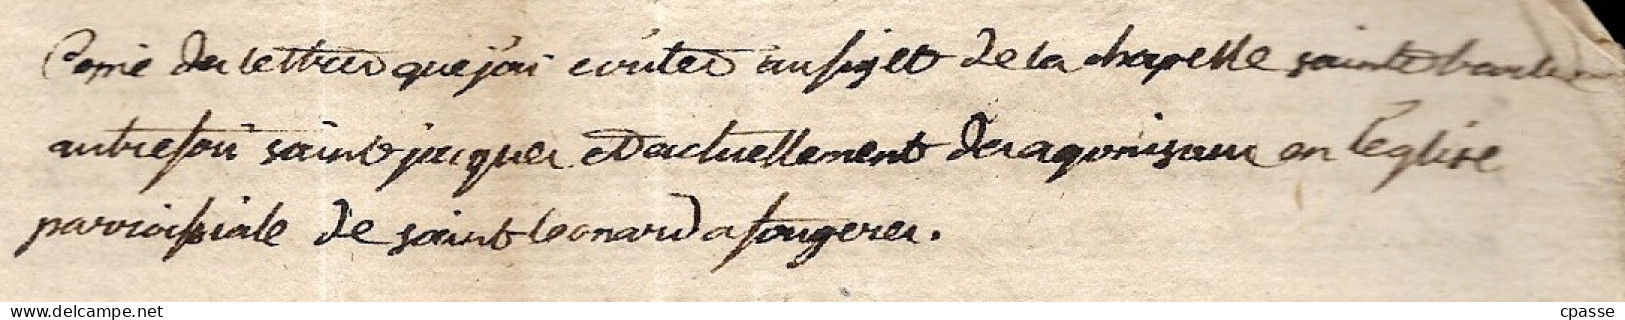 Copie des lettres que j'ai ecrites au sujet de la chapelle sainte barbe
autrefois saint jacques et actuellement des agonisans en l'eglise
parroissiale de saint leonard a fougeres.
www.delcampe.net
cpasse